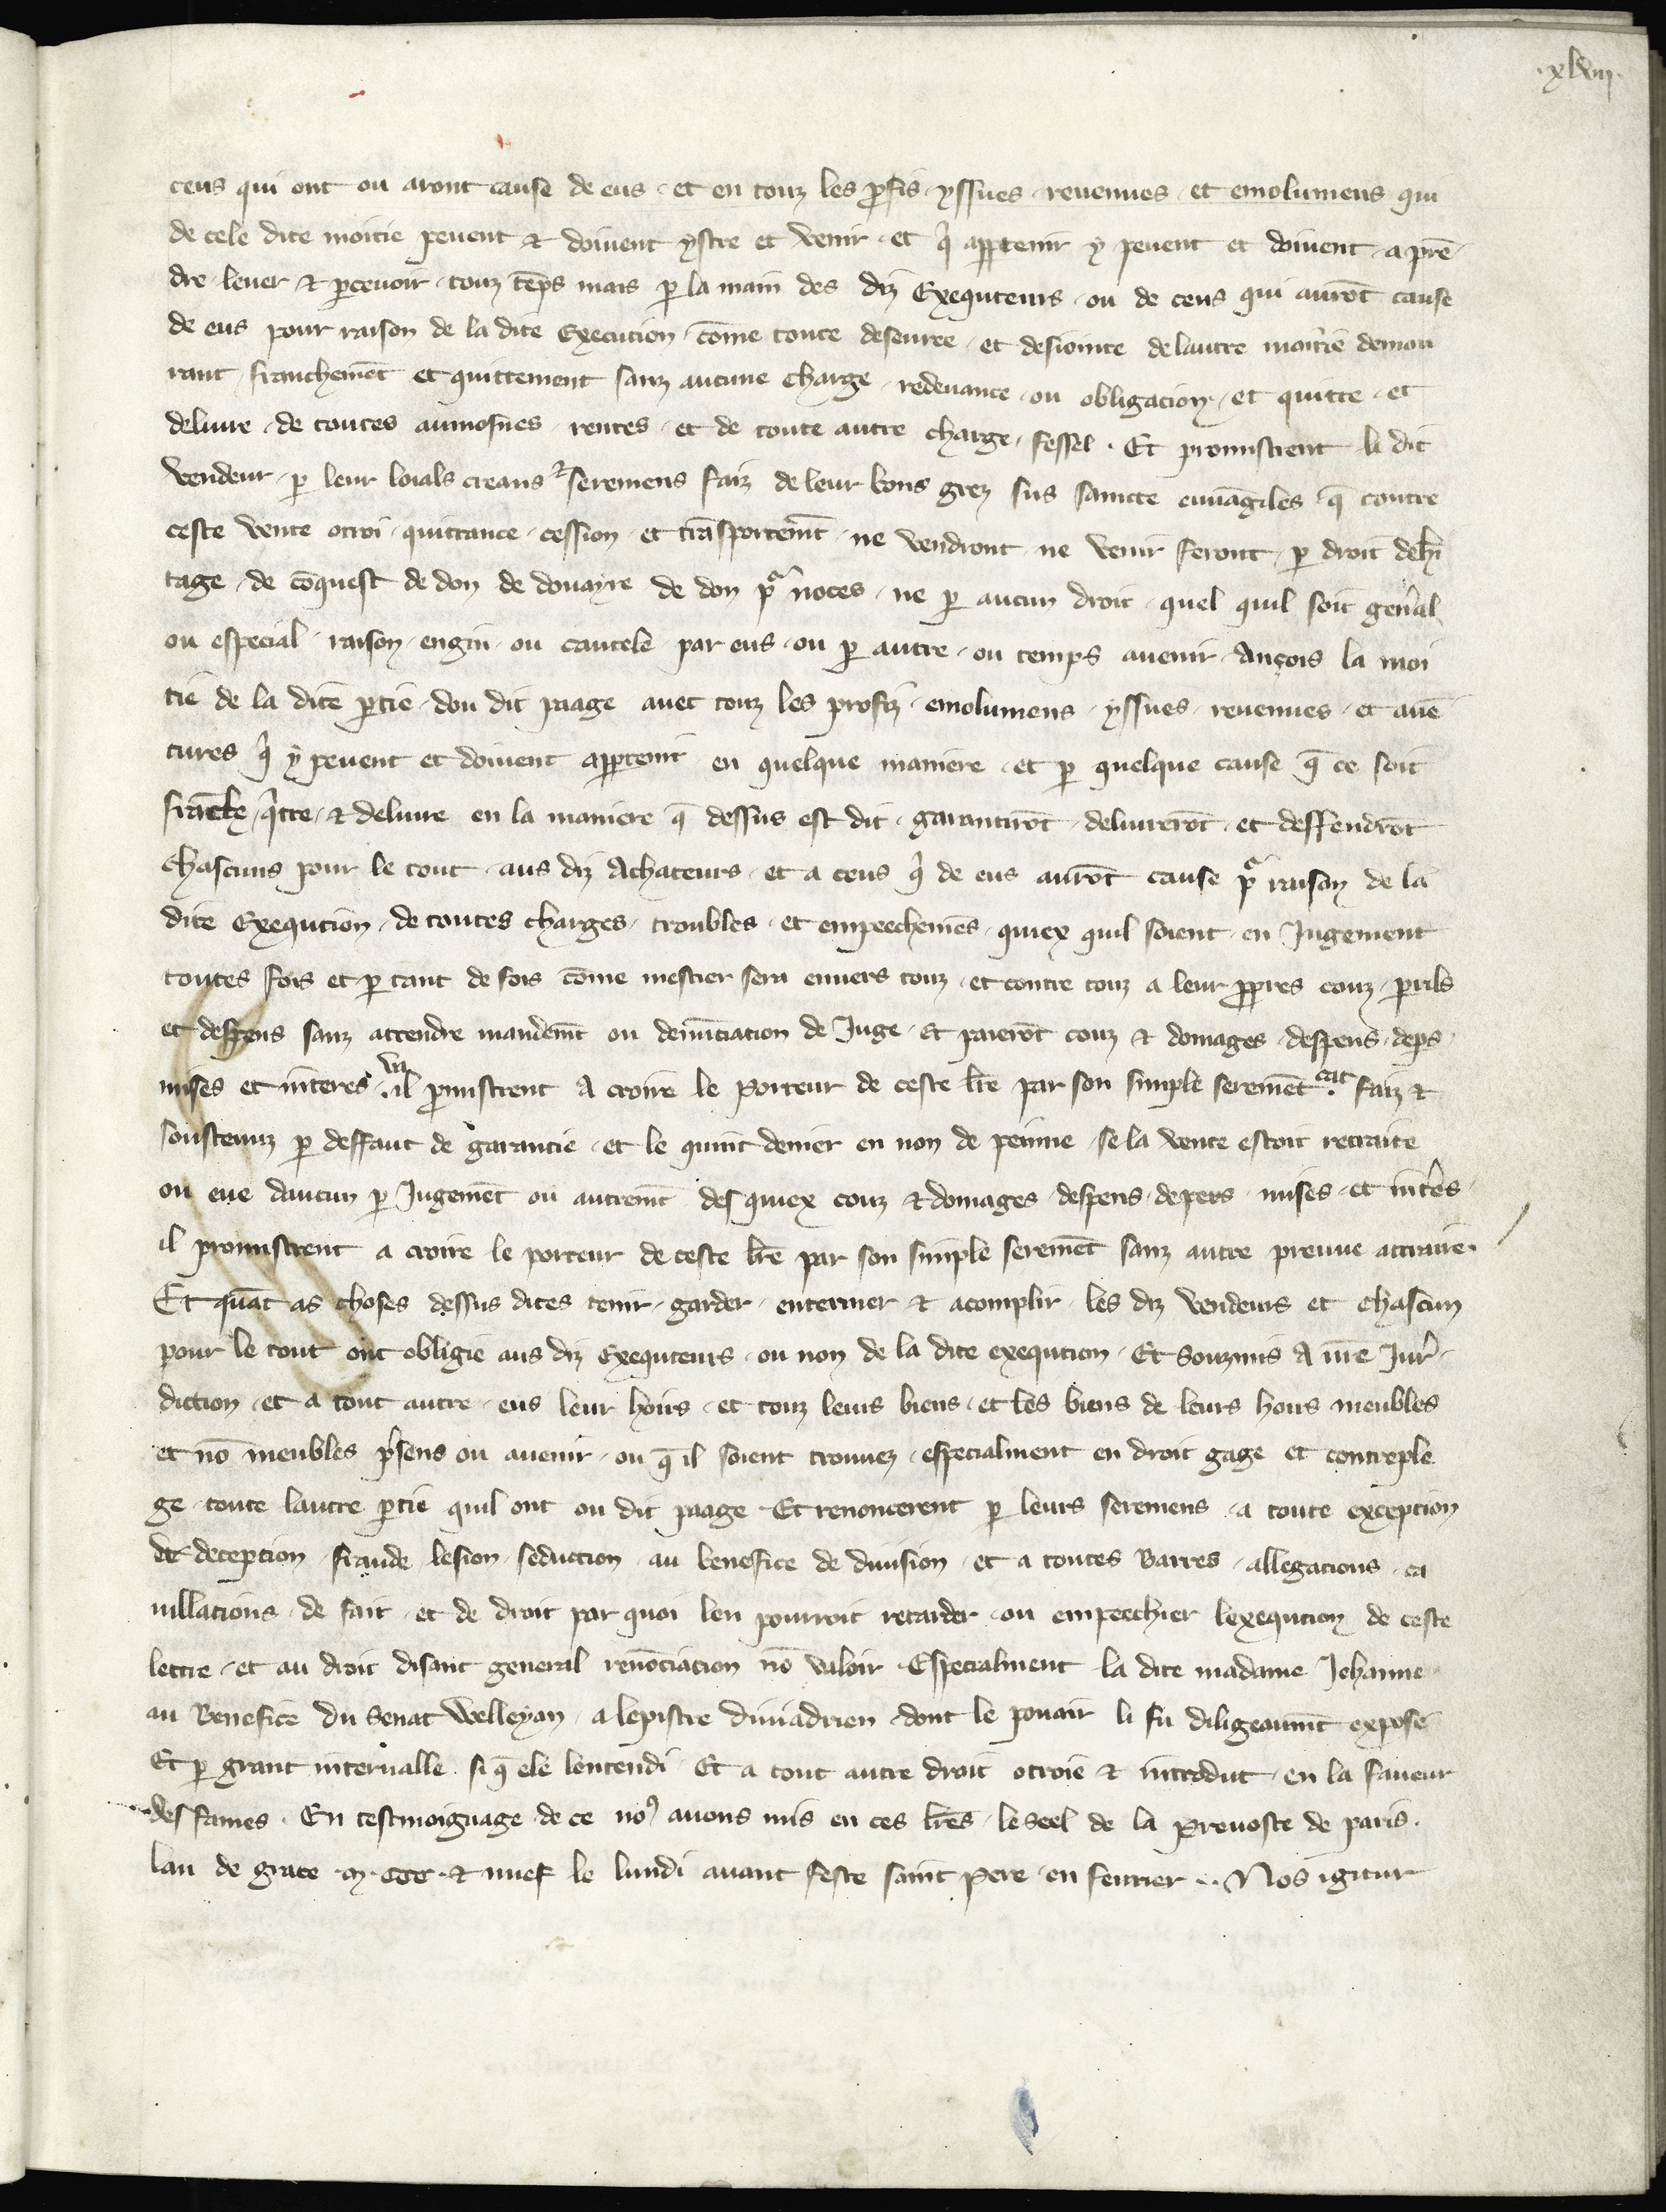 .xlviij.
ceus qui ont ou aront cause de eus . et en touz les ꝓfis . yssues . reuenues . et emolumens qui
de cele dite moitie peuent ⁊ doiuent ystre et venir . et qi aꝑtenir y peuent et doiuent . a prē
dre leuer ⁊ ꝑceuoir . touz tēps mais ꝑ la main des diz Exequteurs . ou de ceus qui aurōt cause
de eus pour raison de la dite Execution . cōme toute deseuree . et desiointe de lautre moitie demou
rant . franchemēt et quittement sanz aucune charge . redeuance . ou obligacion . et quitte . et
deliure . de toutes aumosnes . rentes . et de toute autre charge . fessel . Et promistrent li dit
vendeur . ꝑ leur loials creans ⁊ seremens faiz de leur bons grez sus sainctes euuāgiles . q̄ contre
ceste vente otroi . quittance . cession . et trāsportemt̄ . ne vendront . ne venir feront . ꝑ droit deh̄i
tage . de cōquest de don de douayre de don pa noces . ne ꝑ aucun droit . quel quil soit gen̄al
ou especial . raison . engin . ou cautele par eus . ou ꝑ autre . ou temps auenir . Ançois la moi
tie de la dite ꝑtie . dou dit paage auec touz les profiz . emolumens . yssues . reuenues . et auē
tures qi y peuent et doiuent aꝑtenir en quelque maniere . et ꝑ quelque cause q̄ ce soit
frāche . qitte . ⁊ deliure en la maniere q̄ dessus est dit . garantirōt . deliurerōt . et deffendrōt
chascuns pour le tout . aus diz Achateurs . et a ceus qi de eus aurōt cause pa raison de la
dite Exeqution . de toutes charges . troubles . et empeechemēs . quiex quil soient . en Jugement
toutes fois et ꝑ tant de fois cōme mestier sera enuers touz . et contre touz a leur ꝓpres couz . ꝑils
et despens sanz attendre mandemt̄ ou denūciation de Juge . Et paierōt couz ⁊ domages . despens . deps .
mises et interes . va il ꝓmistrent a croire le porteur de ceste lr̄e par son simple seremēt . cat faiz ⁊
soustenuz ꝑ deffaut de garantie . et le quint denier en non de peinne . se la vente estoit retraite
ou eue daucun ꝑ Jugemēt ou autremt̄ des quiex couz ⁊ domages . despens . depers . mises . et intēs .
il promistrent a croire le porteur de ceste lr̄e par son simple seremēt sanz autre preuue attraire .
Et quāt as choses dessus dites tenir . garder . enteriner ⁊ acomplir . les diz vendeurs et chascun
pour le tout ont obligie aus diz Exequteurs . ou non de la dite exeqution . Et Souzmis A nr̄e Juri
diction . et a tout autre . eus leur hoirs . et touz leurs biens . et les biens de leurs hoirs meubles
et nō meubles pisens ou auenir . ou q̄ il soient trouuez . especialment en droit gage et contreple
ge . toute lautre ꝑtie quil ont ou dit paage . Et renoncerent ꝑ leurs seremens . a toute exception
de deception . fraude . lesion . seduction . au benefice de diuision . et a toutes Barres . allegacions . ca
uillacions . de fait . et de droit par quoi len pourroit retarder . ou empeechier lexeqution de ceste
lettre . et au droit disant general renōciacion nō valoir . Especialment la dite madame Jehanne
au Benefice du Senat Welleyan . a lepistre diuiadrien . dont le pouair li fu diligeaumt̄ exposé
Et ꝑ grant interualle . si q̄ ele lentendi . Et a tout autre droit otroié ⁊ introdut . en la faueur
des fames . En tesmoignage de ce noꝰ auons mis en ces lr̄es . le Seel de la preuosté de paris .
lan de grace . m . ccc . ⁊ nuef le lundi auant feste saint pere . en feurier . . Nos igitur